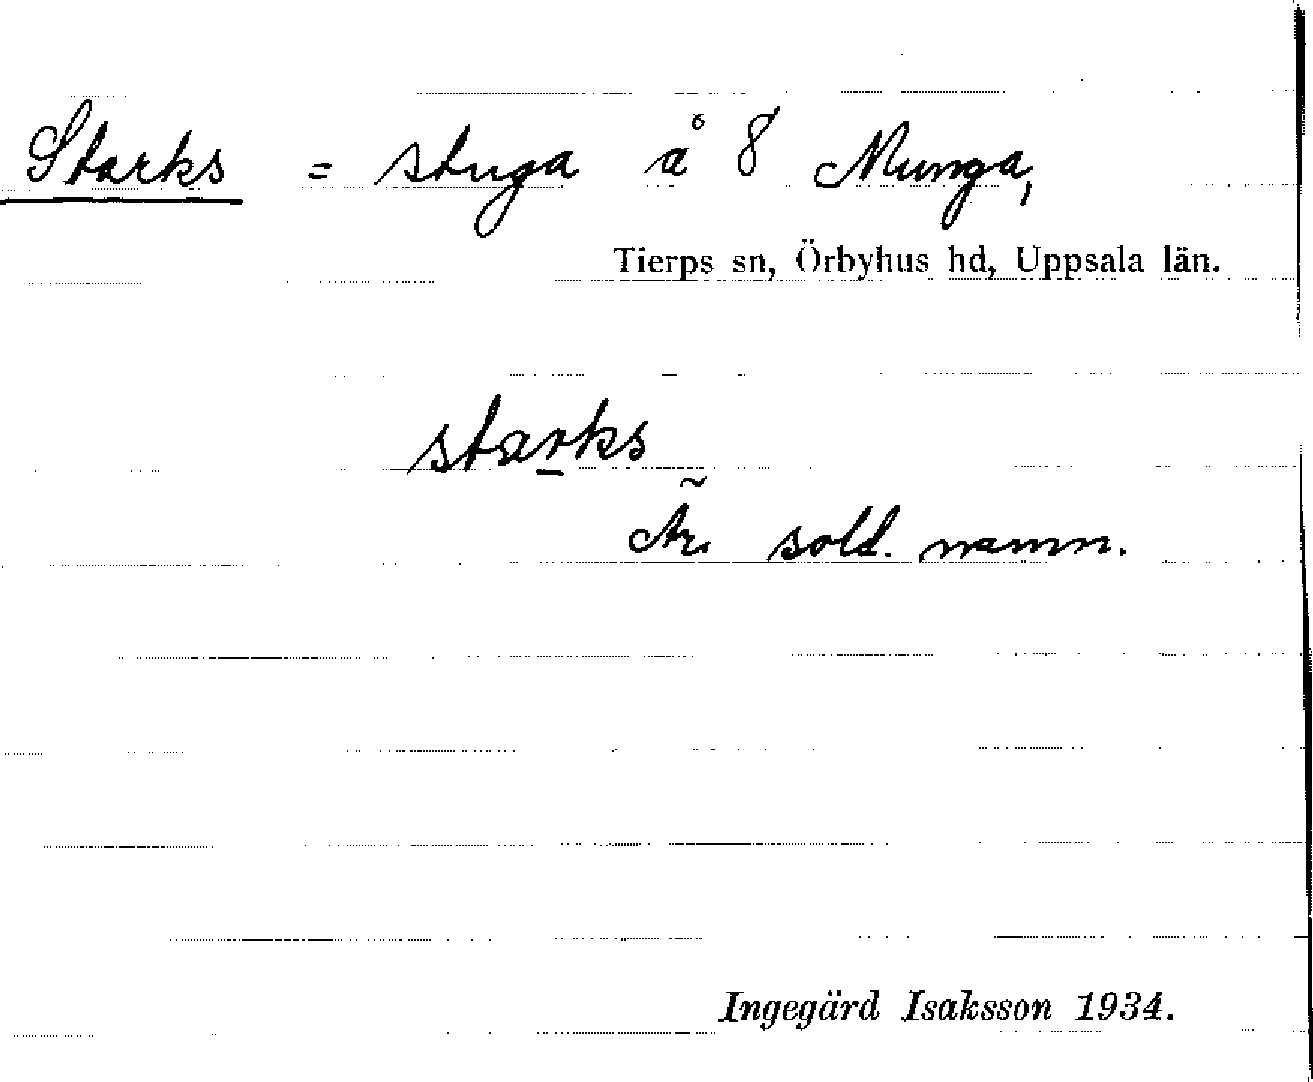 Starks = stuga å 8 Munga,
Tierps sn, Örbyhus hd, Uppsala län.
starks
sold. namn.
Ingegärd Isaksson 1934.